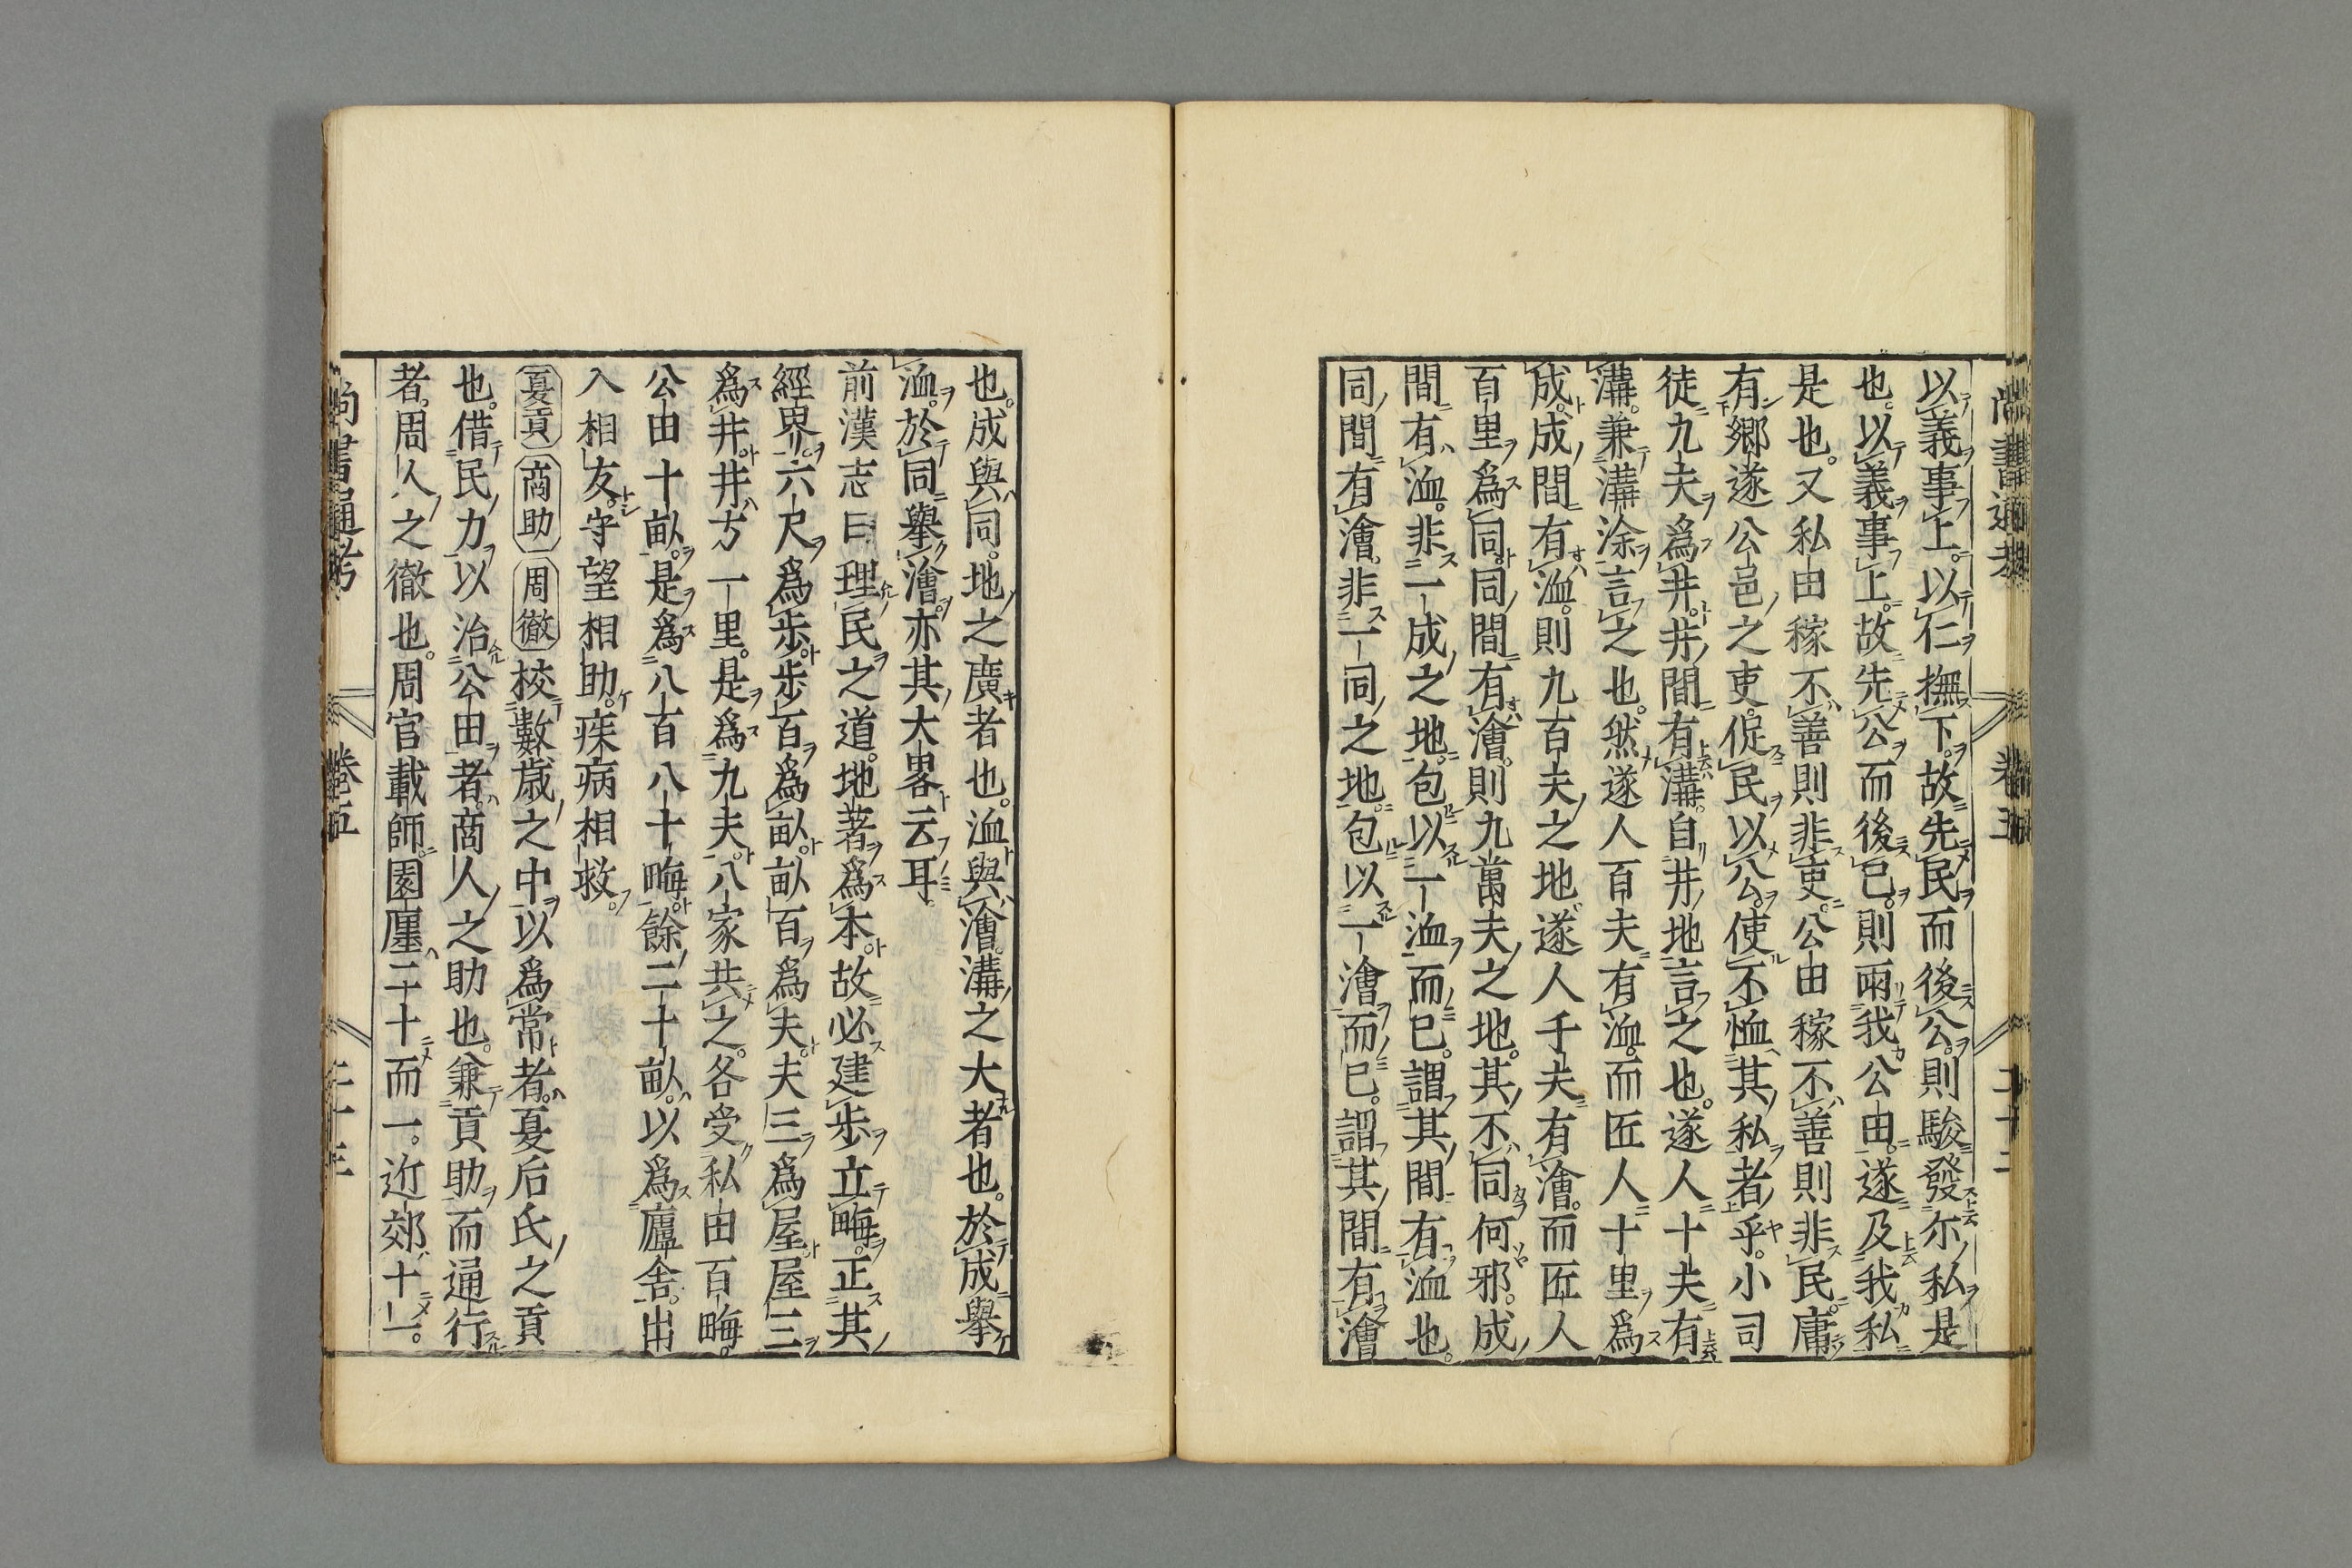 以義事上。以仁撫下。故先民而後公。則駿發尓私是
也。以義事上。故先公而後已。則雨我公田。遂及我私
是也。又私田稼不善則非吏。公田稼不善則非民。庸
有鄉遂公邑之吏。促民以公。使不恤其私者乎。小司
徒九夫爲井。井間有溝。自井地言之也。遂人十夫有
溝。兼溝涂言之也。然遂人百夫有洫。而匠人十里爲
成。成間有洫。則九百夫之地。遂人千夫有澮。而匠人
百里爲同。同間有澮。則九萬夫之地。其不同何邪。成
間有洫。非一成之地。包以一洫而已。謂其間有洫也。
同間有澮。非一同之地。包以一澮而已。謂其間有澮
也。成與同。地之廣者也。洫與澮。溝之大者也。於成舉
洫。於同舉澮。亦其大畧云耳。
前漢志曰理民之道。地著爲本。故必建步立畮。正其
經界。六尺爲步。步百爲畝。畝百爲夫。夫三爲屋。屋三
爲井。井方一里。是爲九夫。八家共之。各受私田百畮。
公田十畝。是爲八百八十畮。餘二十畝。以爲廬舍。出
入相友。守望相助。疾病相救。
夏貢 商助 周徹 校數歲之中以爲常者。夏后氏之貢
也。借民力以治公田者。商人之助也。兼貢助而通行
者。周人之徹也。周官載師。園廛二十而一。近郊十一。
尚書通考 卷五